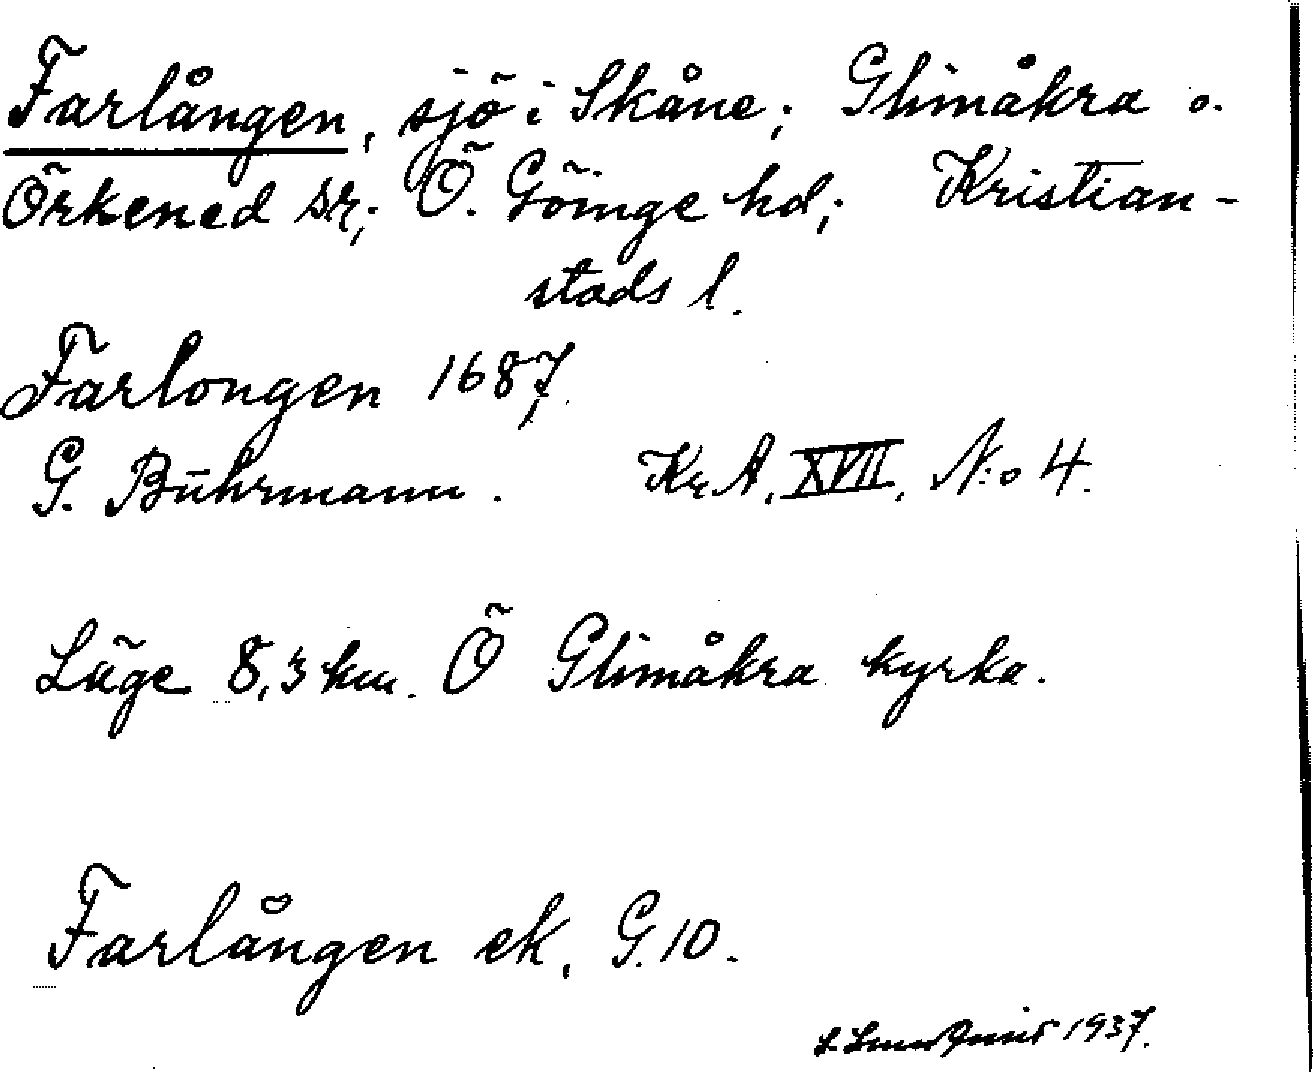 Farlången, sjö i Skåne; Glimåkra o.
Örkened sr; Ö. Göinge hd; Kristian-
stads l.
Farlongen 1687.
G. Buhrmann. Kr A, XVII, N:o 4.
Läge 8,3 km. Ö Glimåkra kyrka.
Farlången ek. G. 10.
1937.